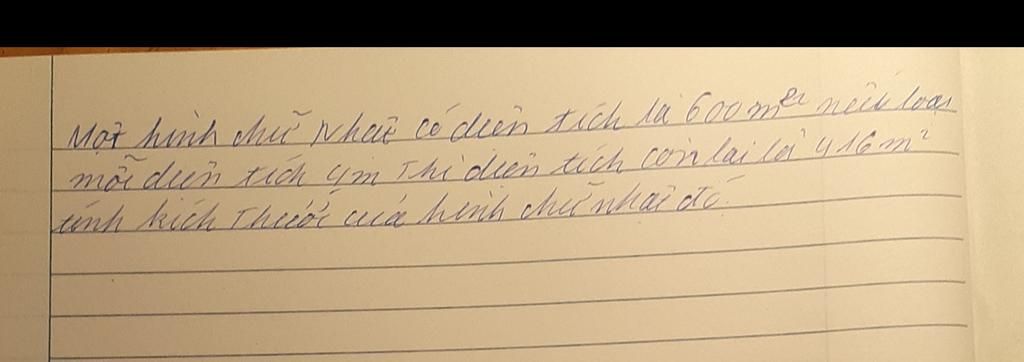 Một hình chữ nhật có diện tích là 600m² nếu loại
mỗi diện tích 4m thì diện tích còn lại là 416m²
tính kích thước của hình chữ nhật đó.